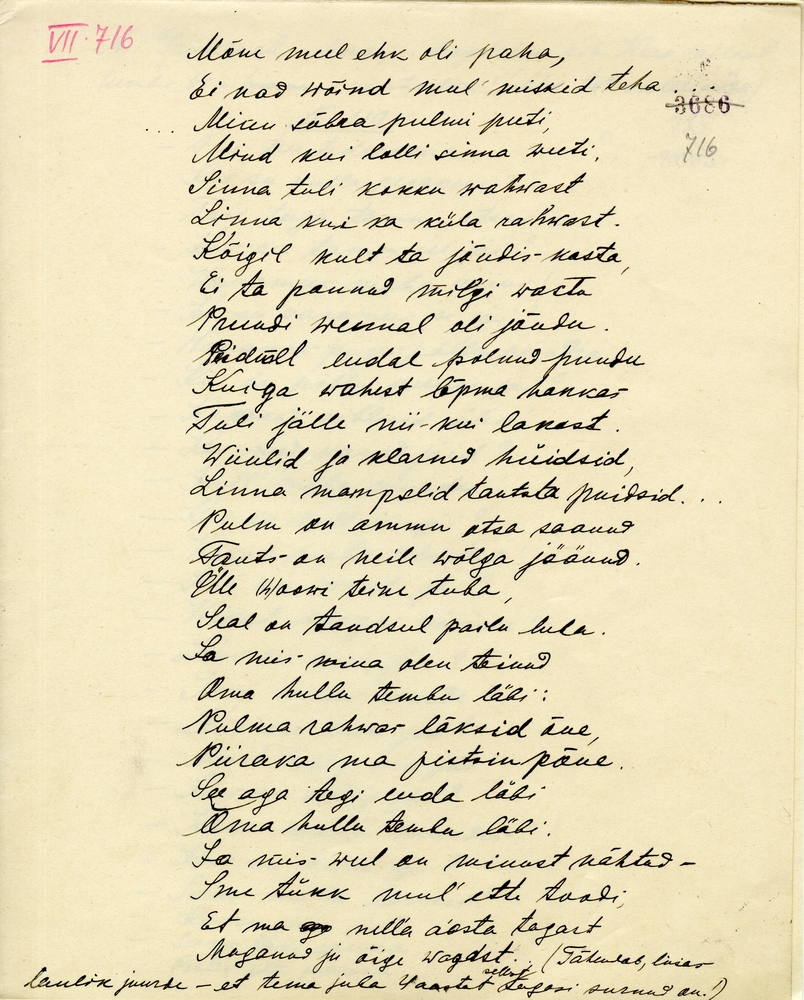 VII. 716
3686
716
Mõne meel ehk oli paha,
Ei nad wõind mul' miskid teha...
... Minu sõbra pulmi peeti,
Mind kui lolli sinna weeti,
Sinna tuli kokku rahwast
Linna kui ka küla rahwast.
Kõigil kult ta jõudis kosta,
Ei ta pannud milgi wasta
Pruudi wennal oli jõudu.
endal polnud puudu
Kuiga wahest lõpma hakkas
Tuli jälle nii-kui lakast.
Wiiulid ja klarned hüidsid,
Linna mampslid tantsta püidsid...
Pulm on ammu otsa saanud
Tants on neile wõlga jäänud.
Ülle Hoowi teine tuba,
Seal on tandsul palu luba.
Ja mis mina olen teinud
Oma hullu tembu läbi:
Pulma rahwas läksid õue,
Piiraka ma pistsin põue.
See aga tegi enda läbi
Oma hullu tembu läbi.
Ja mis weel on minust nähtud –
Sme tükk mul' ette toodi,
Et ma nella aasta tagast
Maganud ju õige wagast. (Tähendab, lisas
laulik juurde – et tema jula 4 aastat sellest tagasi surnud on!)